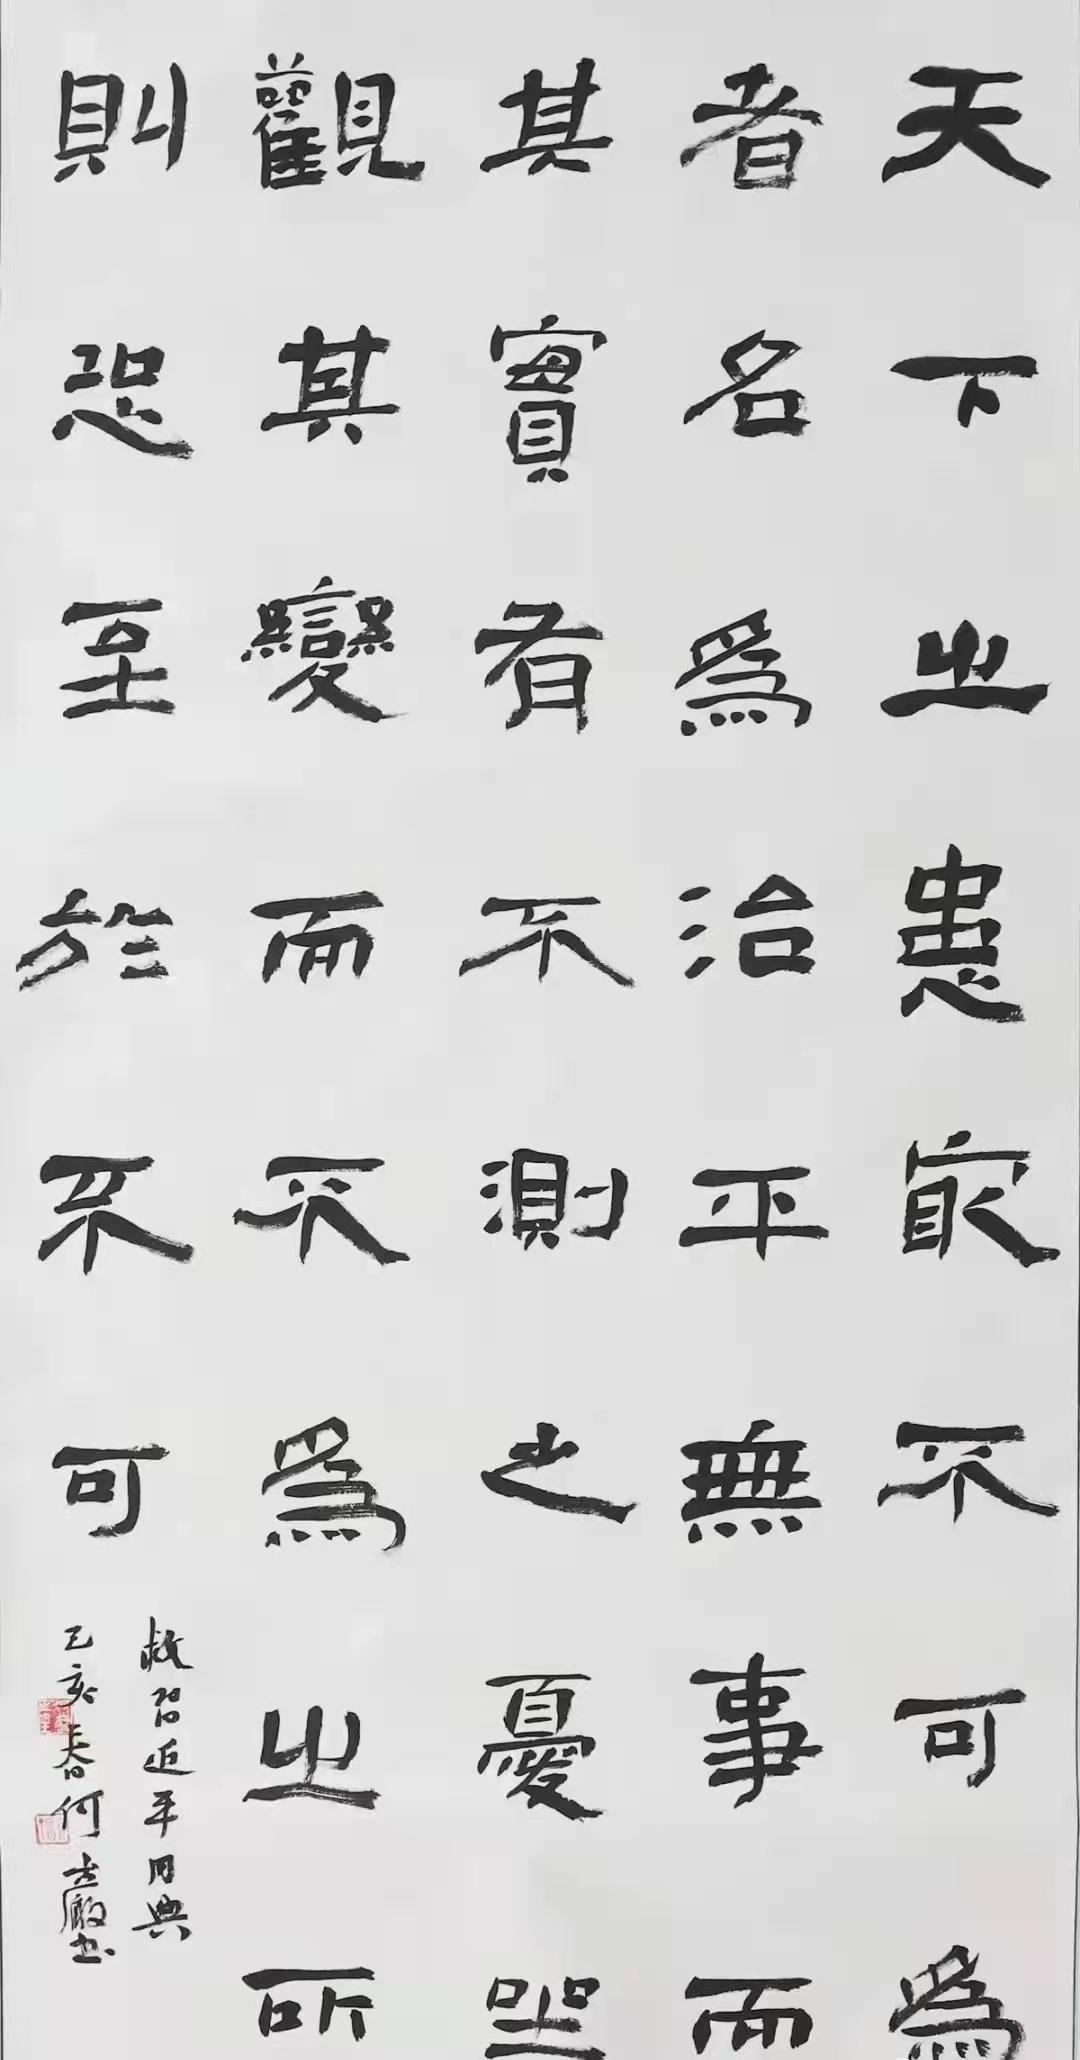 天下之患最不可為
者名為治平無事而
其實有不測之憂坐
觀其變而不為之所
則恐至於不可
敬習近平用典
己亥春何書